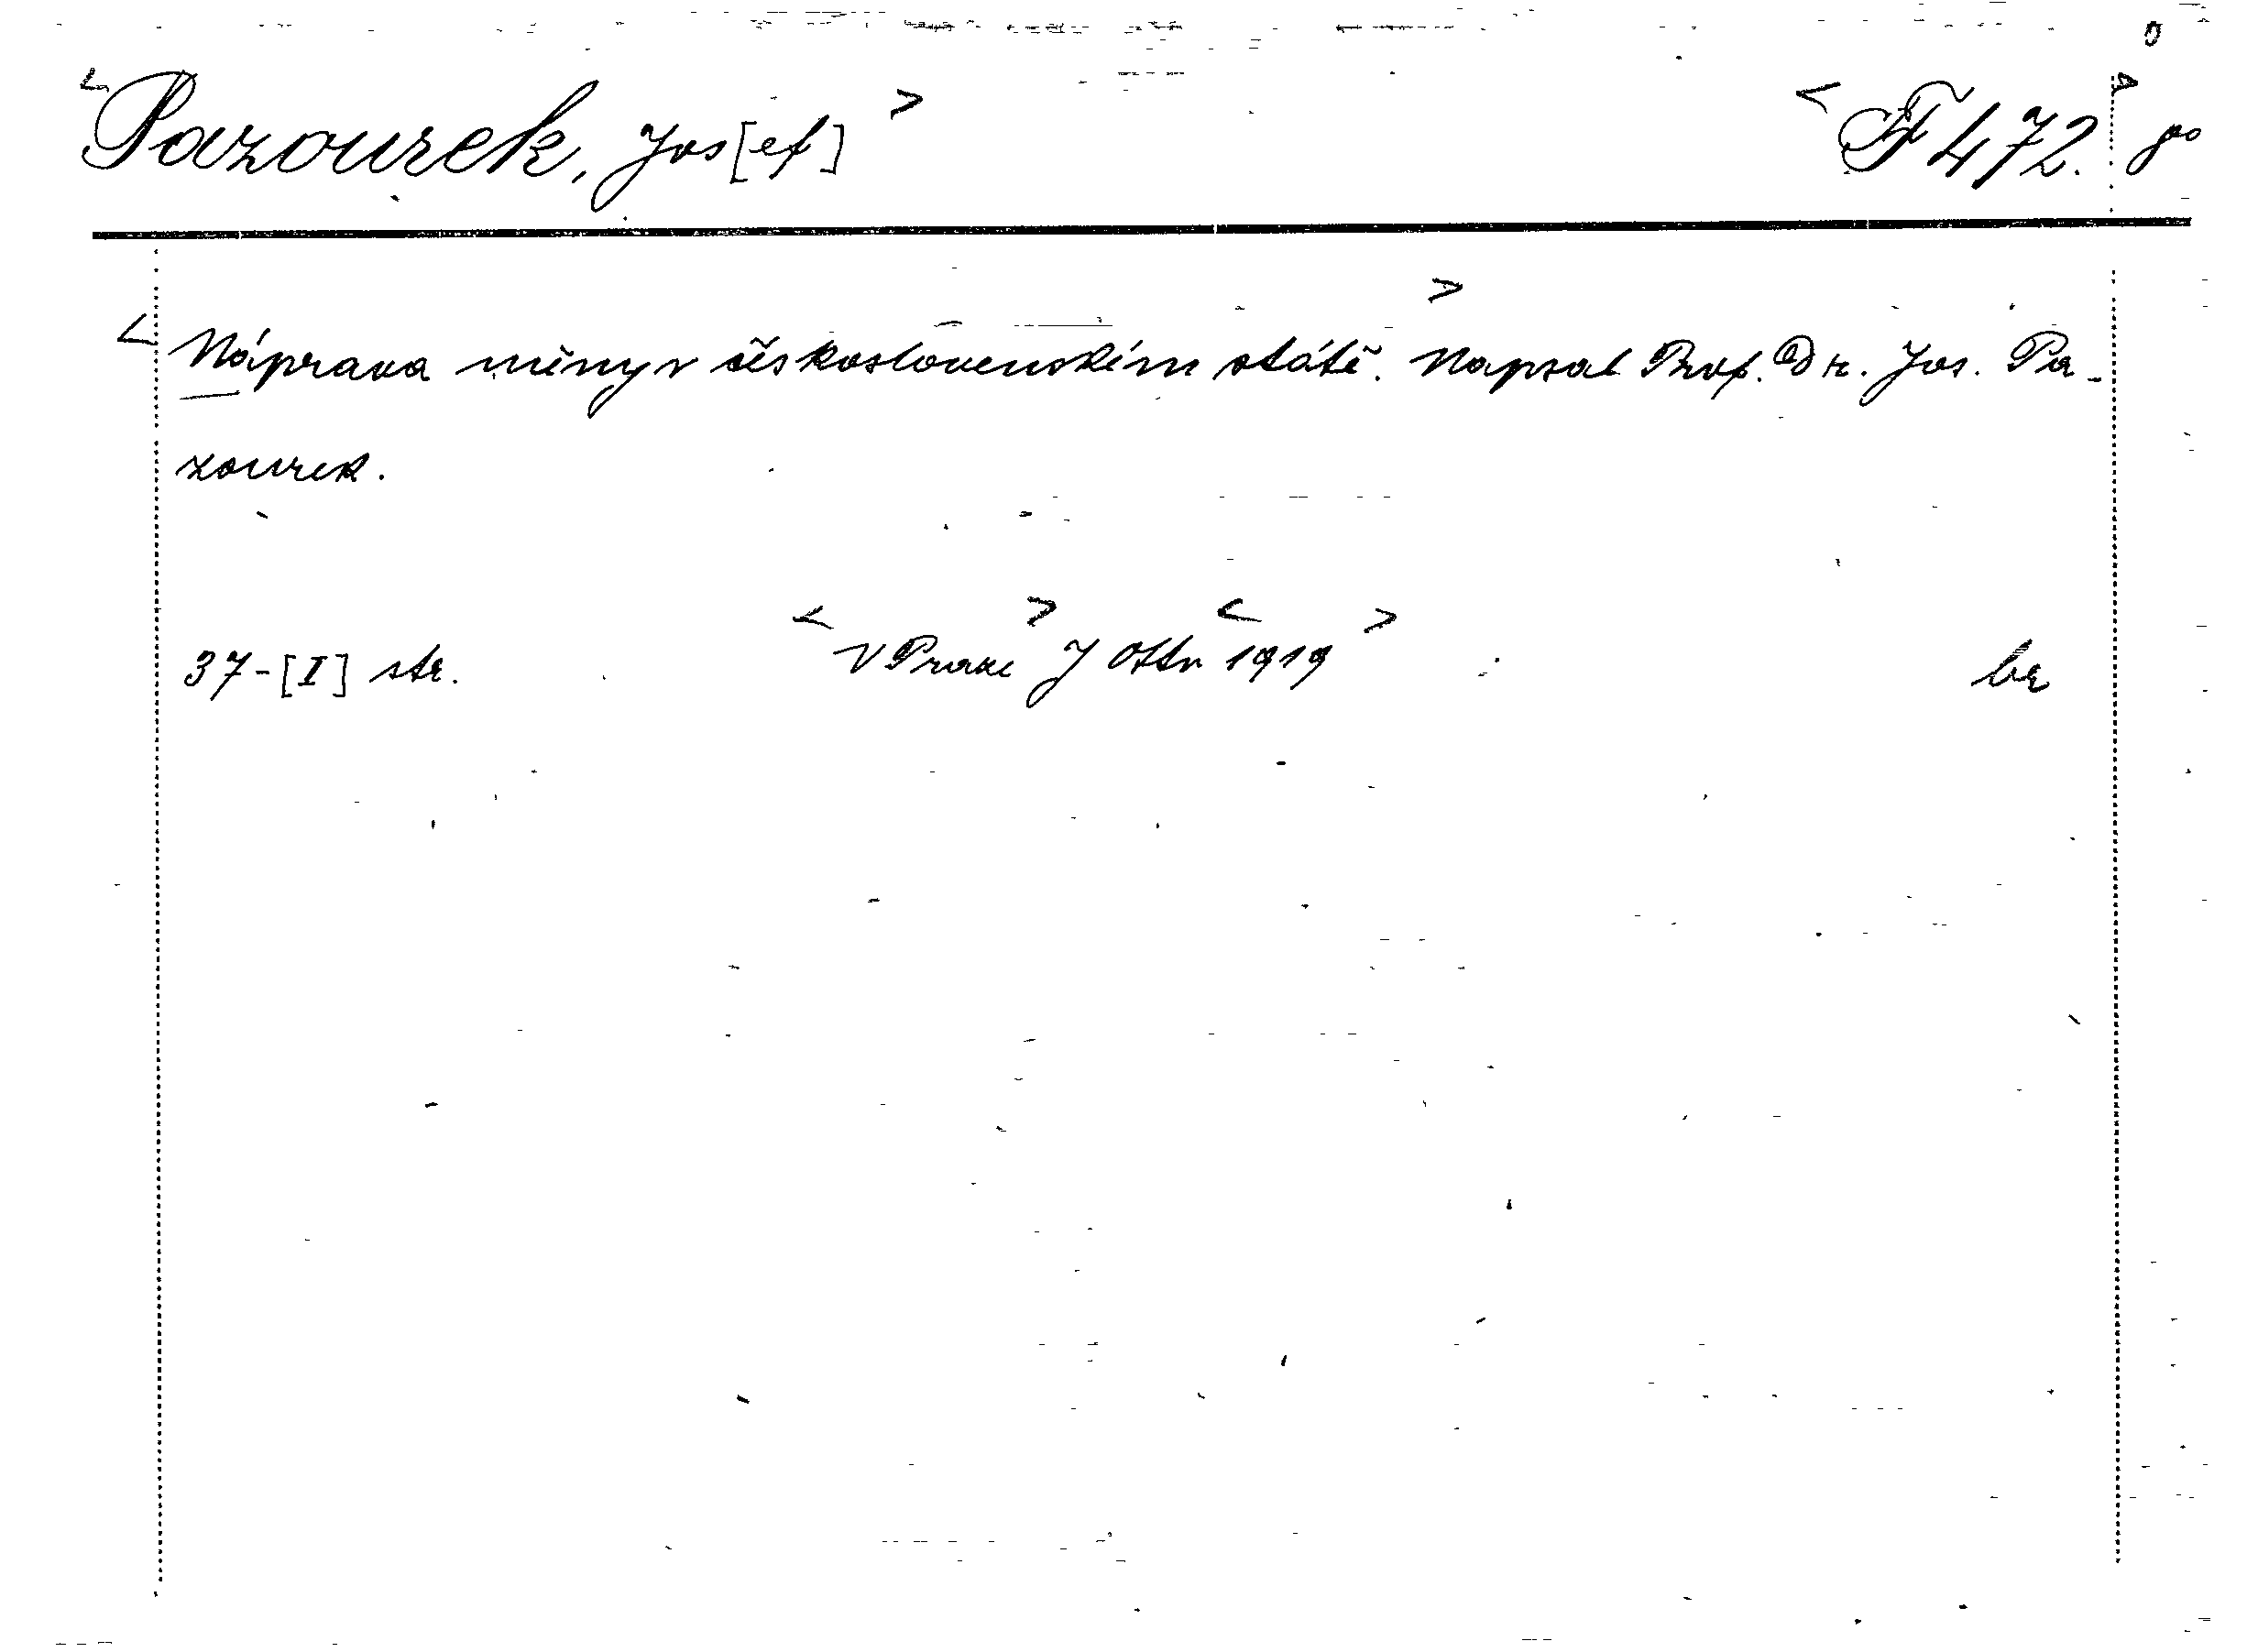 <Pazourek, Jos[ef]> <F 472.>
<Náprava měny v československém státě.> Napsal Prof. Dr. Jos. Pa-
zourek.
37-[I] str. <V Praze> J Otto <1919> br